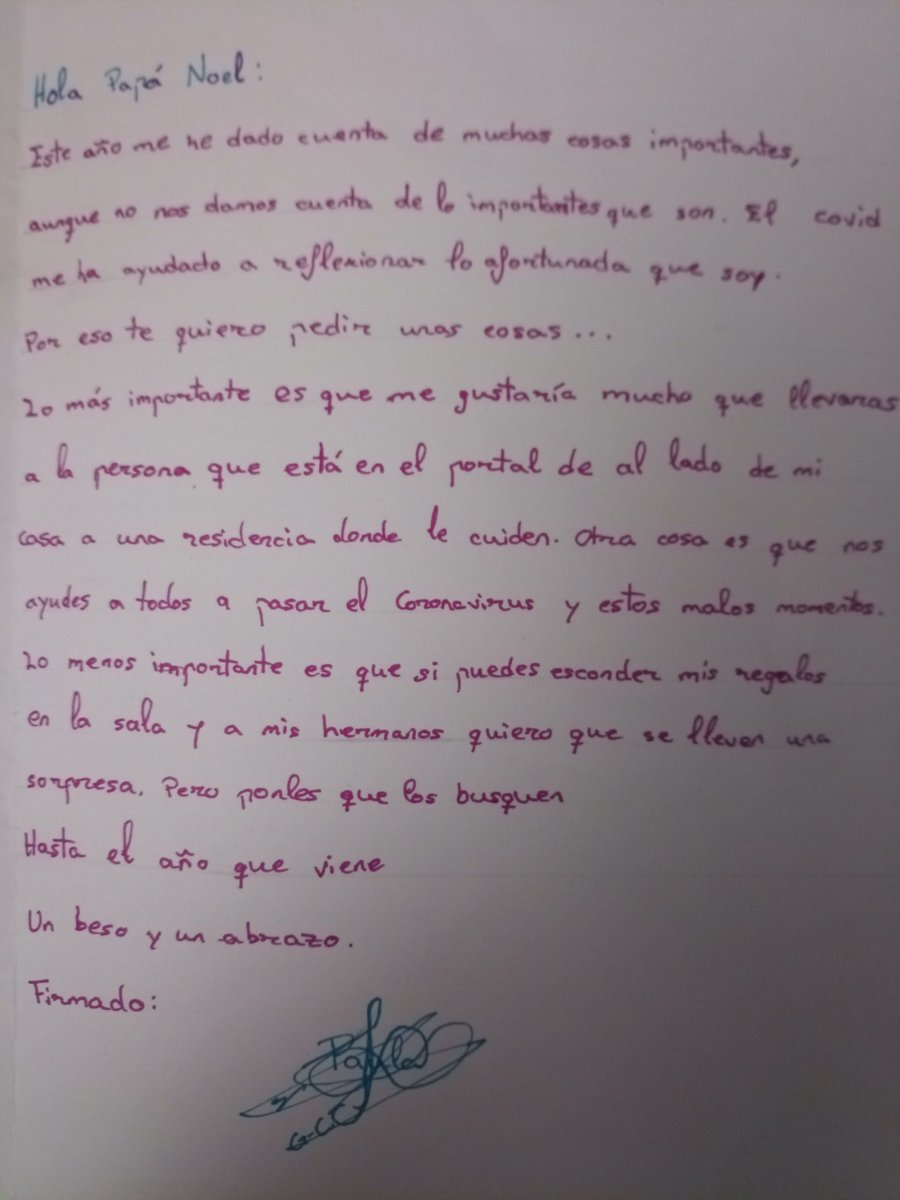 Hola Papá Noel:
Este año me he dado cuenta de muchas cosas importantes,
aunque no nos damos cuenta de lo importantes que son. El covid
me ha ayudado a reflexionar lo afortunada que soy.
Por eso te quiero pedir unas cosas...
Lo más importante es que me gustaría mucho que llevaras
a la persona que está en el portal de al lado de mi
casa a una residencia donde le cuiden. Otra cosa es que nos
ayudes a todos a pasar el Coronavirus y estos malos momentos.
Lo menos importante es que si puedes esconder mis regalos
en la sala y a mis hermanos quiero que se lleven una
sorpresa. Pero ponles que los busquen
Hasta el año que viene
Un beso y un abrazo.
Firmado: